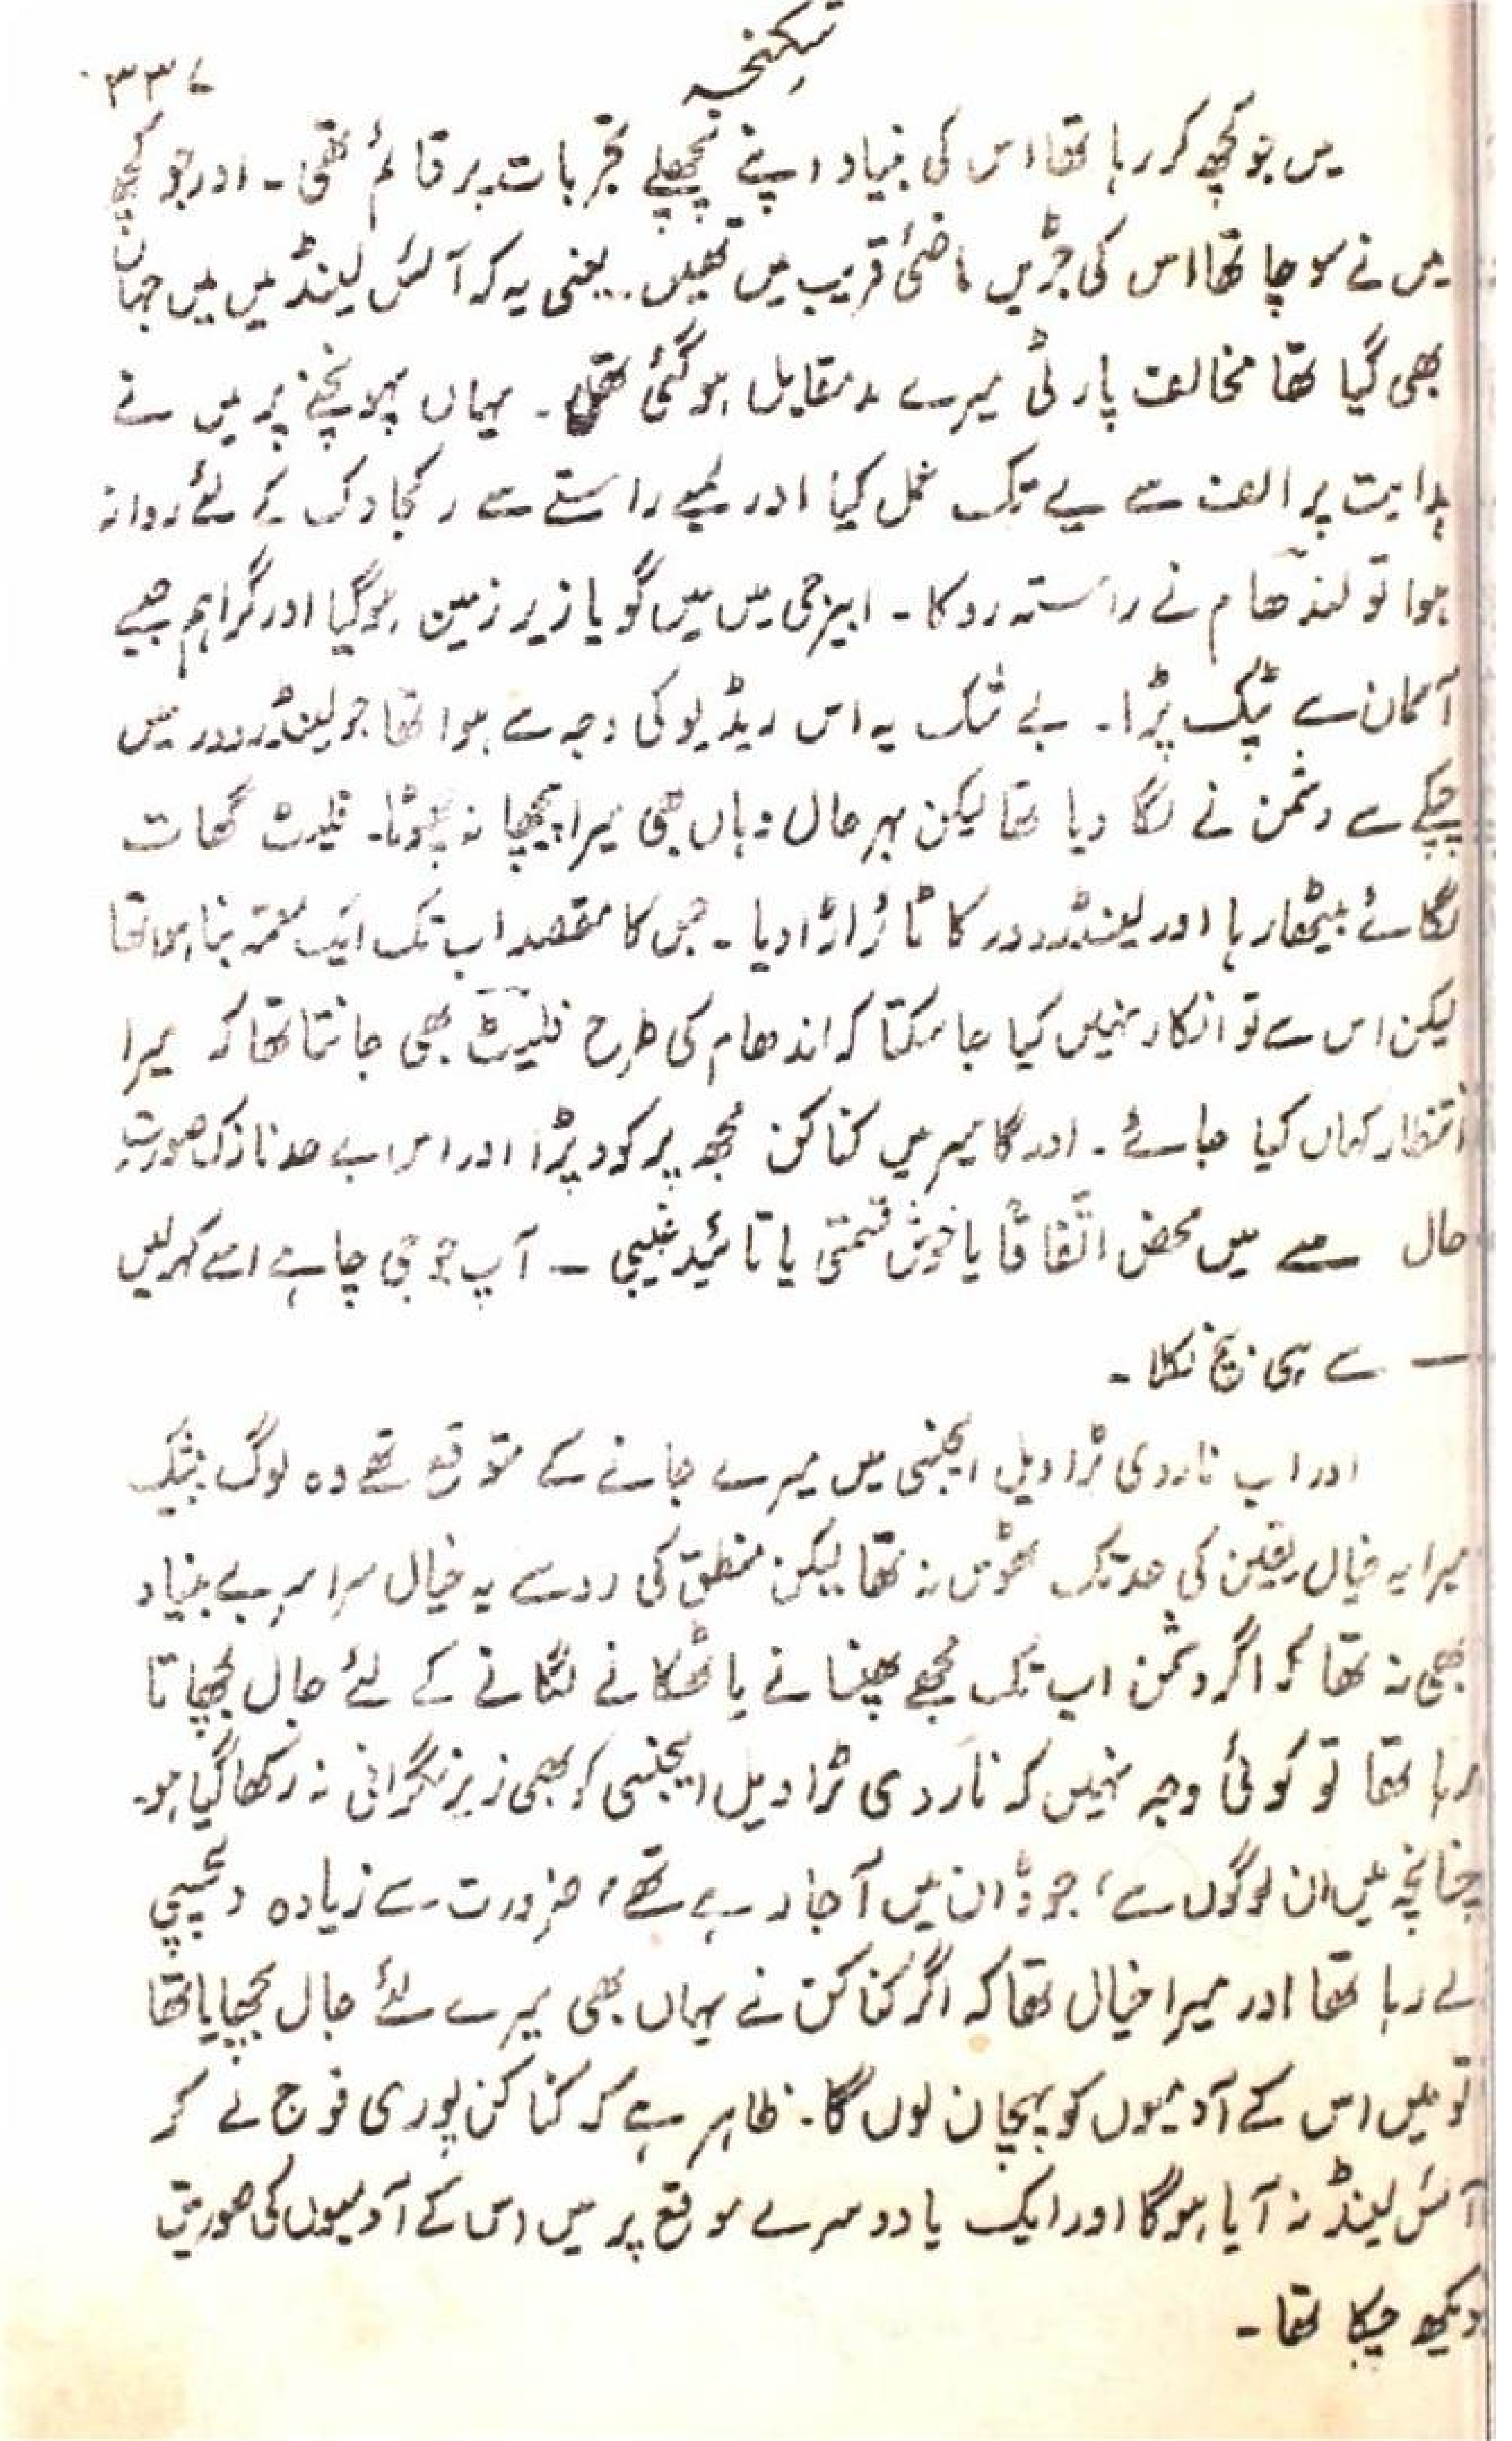 شکنجہ
۳۳۷
میں جو کچھ کر رہا تھا اس کی بنیاد اپنے پچھلے تجربات پر قائم تھی۔ اور جو کچھ
میں نے سوچا تھا اس کی جڑیں ماضئ قریب میں تھیں.. یعنی یہ کہ آئس لینڈ میں میں جہاں
بھی گیا تھا مخالف پارٹی میرے مدمقابل ہوگئی تھی۔ یہاں پہونچنے پر میں نے
ہدایت پر الف سے یے تک عمل کیا اور لمبے راستے سے رکجاوک کے لئے روانہ
ہوا تو لنڈھام نے راستہ روکا۔ ابیرجی میں میں گویا زیر زمین ہوگیا اور گراہم جیسے
آسمان سے ٹپک پڑا۔ بے شک یہ اس ریڈیو کی وجہ سے ہوا تھا جو لینڈروور میں
چپکے سے دشمن نے لگا دیا تھا لیکن بہر حال وہاں بھی میرا پیچھا نہ چھوٹا۔ فلیٹ گھات
لگائے بیٹھا رہا اور لینڈروور کا ٹائر اڑا دیا۔ جس کا مقصد اب تک ایک معمہ بنا ہوا تھا
لیکن اس سے تو انکار نہیں کیا جا سکتا کہ لنڈھام کی طرح فلیٹ بھی جانتا تھا کہ میرا
انتظار کہاں کیا جائے۔ اور گایسر میں کناکن مجھ پر کود پڑا اور اس بے حد نازک صورتِ
حال سے میں محض اتّفاقاً یا خوش قسمتی یا تائید غیبی — آپ جو جی چاہے اسے کہہ لیں
— سے ہی بچ نکلا۔
اور اب ناردی ٹراویل ایجنسی میں میرے جانے کے متوقع تھے وہ لوگ بیشک
میرا یہ خیال یقین کی حد تک ٹھوس نہ تھا لیکن منطق کی رو سے یہ خیال سراسر بے بنیاد
بھی نہ تھا کہ اگر دشمن اب تک مجھے پھنسانے یا ٹھکانے لگانے کے لئے جال بچھاتا
رہا تھا تو کوئی وجہ نہیں کہ ناردی ٹراویل ایجنسی کو بھی زیر نگرانی نہ رکھا گیا ہو۔
چنانچہ میں ان لوگوں سے، جو وہاں میں آ جا رہے تھے، ضرورت سے زیادہ دلچسپی
لے رہا تھا اور میرا خیال تھا کہ اگر کناکن نے یہاں بھی میرے لئے جال بچھایا تھا
تو میں اس کے آدمیوں کو پہچان لوں گا۔ ظاہر ہے کہ کناکن پوری فوج لے کر
آئس لینڈ نہ آیا ہوگا اور ایک یا دوسرے موقع پر میں اس کے آدمیوں کی صورتیں
دیکھ چکا تھا۔